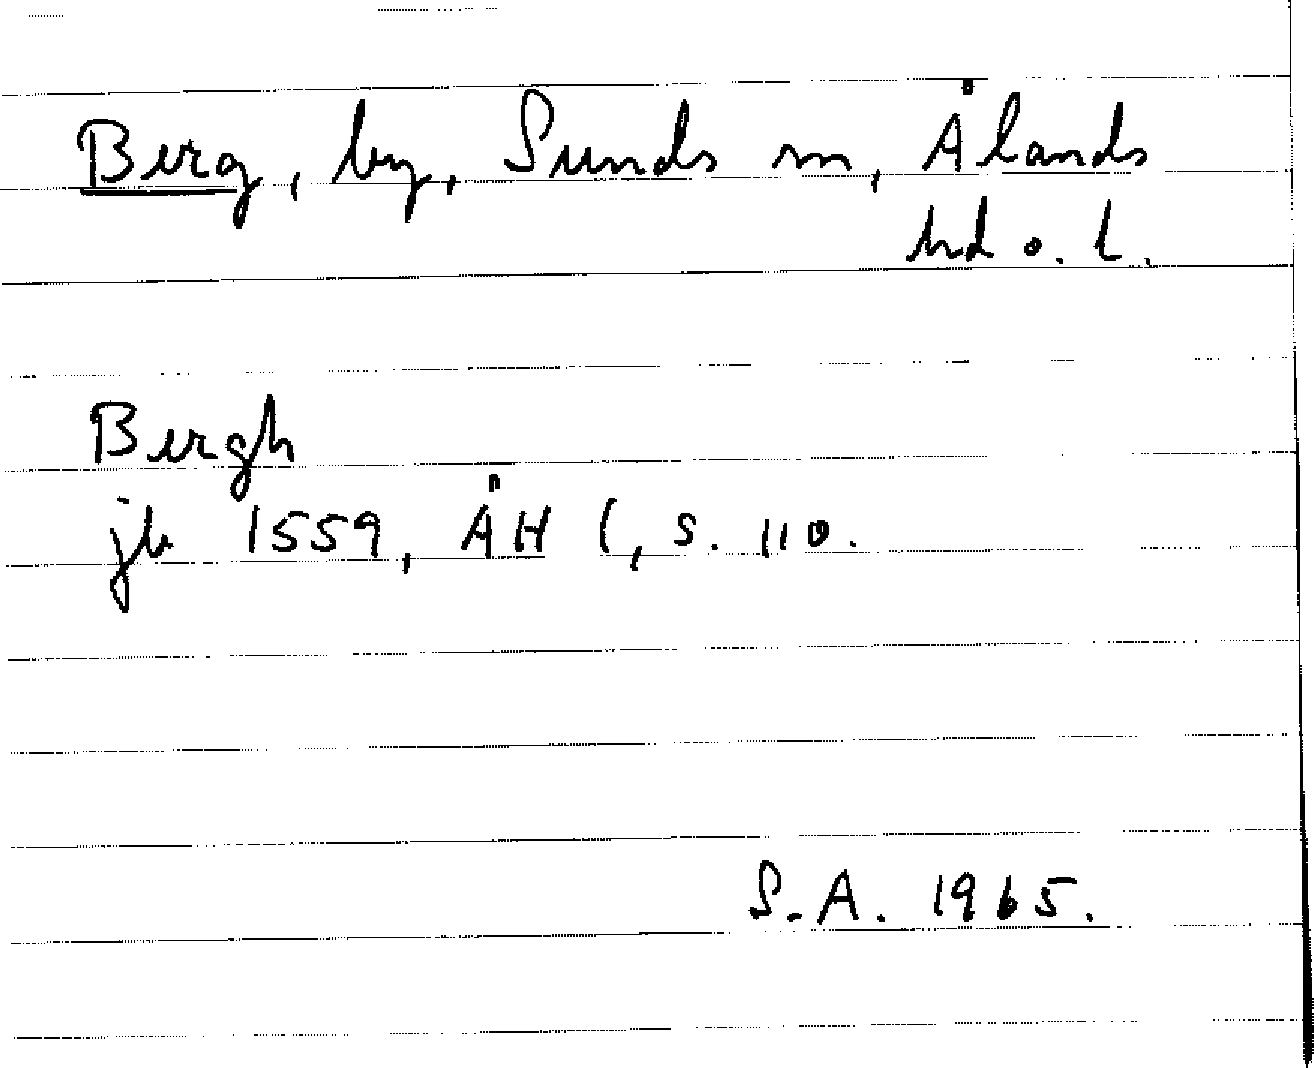 Berg, by, Sunds sn, Ålands
hd o. l.
Bergh
jb 1559, ÅH I, s. 110.
S.A. 1965.